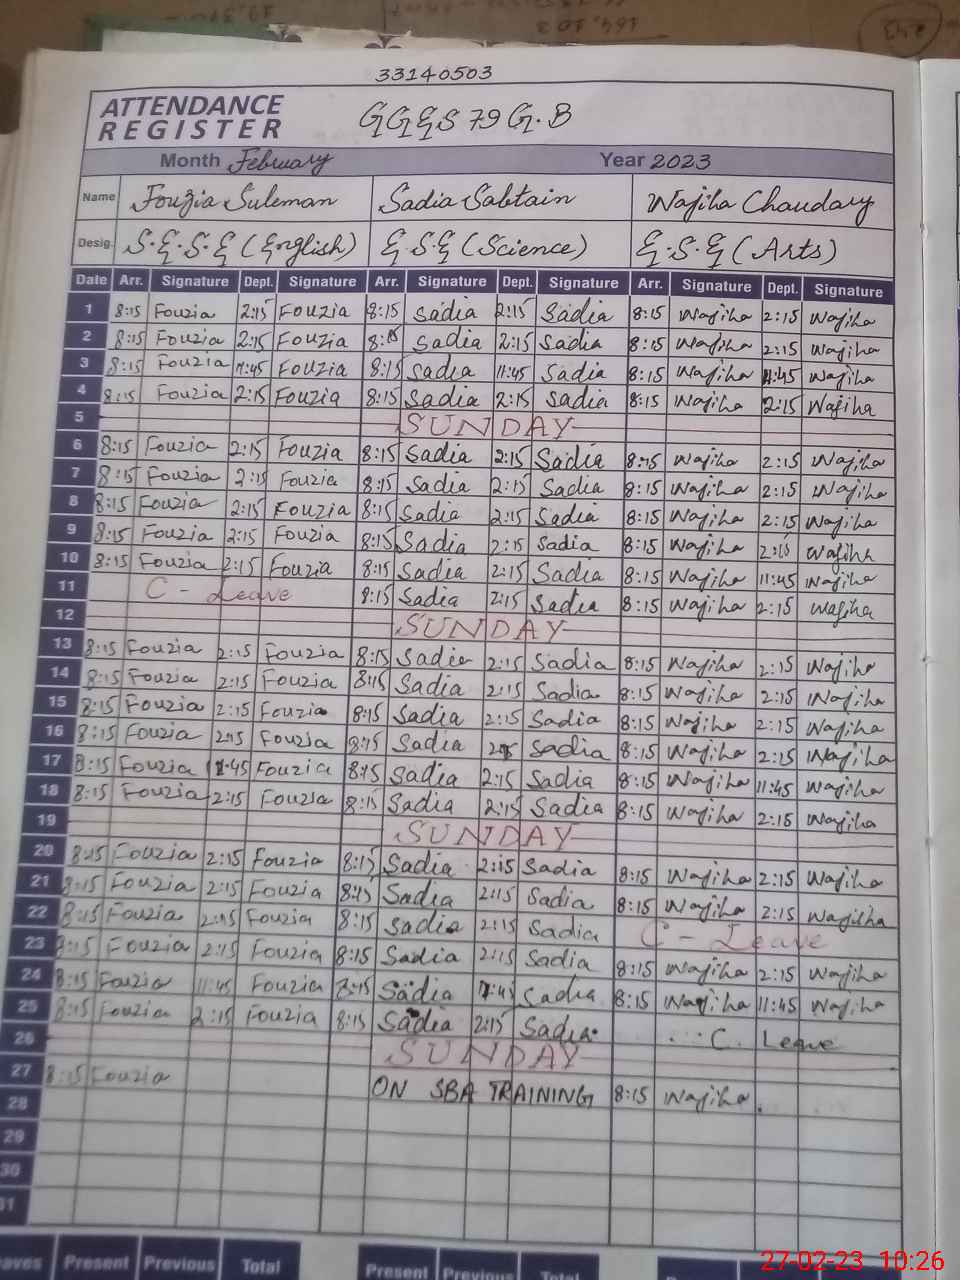 33140503
ATTENDANCE REGISTER GGES 79 G.B
Month February Year 2023
Name Fouzia Suleman Sadia Sabtain Wajiha Chaudary
Desig. S.E.S.E (English) E.S.E (Science) E.S.E (Arts)
Date Arr. Signature Dept. Signature Arr. Signature Dept. Signature Arr. Signature Dept. Signature
1 8:15 Fouzia 2:15 Fouzia 8:15 Sadia 2:15 Sadia 8:15 Wajiha 2:15 Wajiha
2 8:15 Fouzia 2:15 Fouzia 8:15 Sadia 2:15 Sadia 8:15 Wajiha 2:15 Wajiha
3 8:15 Fouzia 11:45 Fouzia 8:15 Sadia 11:45 Sadia 8:15 Wajiha 11:45 Wajiha
4 8:15 Fouzia 2:15 Fouzia 8:15 Sadia 2:15 Sadia 8:15 Wajiha 2:15 Wajiha
5 SUNDAY
6 8:15 Fouzia 2:15 Fouzia 8:15 Sadia 2:15 Sadia 8:15 Wajiha 2:15 Wajiha
7 8:15 Fouzia 2:15 Fouzia 8:15 Sadia 2:15 Sadia 8:15 Wajiha 2:15 Wajiha
8 8:15 Fouzia 2:15 Fouzia 8:15 Sadia 2:15 Sadia 8:15 Wajiha 2:15 Wajiha
9 8:15 Fouzia 2:15 Fouzia 8:15 Sadia 2:15 Sadia 8:15 Wajiha 2:15 Wajiha
10 8:15 Fouzia 2:15 Fouzia 8:15 Sadia 2:15 Sadia 8:15 Wajiha 11:45 Wajiha
11 C - Leave 8:15 Sadia 2:15 Sadia 8:15 Wajiha 2:15 Wajiha
12 SUNDAY
13 8:15 Fouzia 2:15 Fouzia 8:15 Sadia 2:15 Sadia 8:15 Wajiha 2:15 Wajiha
14 8:15 Fouzia 2:15 Fouzia 8:15 Sadia 2:15 Sadia 8:15 Wajiha 2:15 Wajiha
15 8:15 Fouzia 2:15 Fouzia 8:15 Sadia 2:15 Sadia 8:15 Wajiha 2:15 Wajiha
16 8:15 Fouzia 2:15 Fouzia 8:15 Sadia 2:15 Sadia 8:15 Wajiha 2:15 Wajiha
17 8:15 Fouzia 11:45 Fouzia 8:15 Sadia 2:15 Sadia 8:15 Wajiha 11:45 Wajiha
18 8:15 Fouzia 2:15 Fouzia 8:15 Sadia 2:15 Sadia 8:15 Wajiha 2:15 Wajiha
19 SUNDAY
20 8:15 Fouzia 2:15 Fouzia 8:15 Sadia 2:15 Sadia 8:15 Wajiha 2:15 Wajiha
21 8:15 Fouzia 2:15 Fouzia 8:15 Sadia 2:15 Sadia 8:15 Wajiha 2:15 Wajiha
22 8:15 Fouzia 2:15 Fouzia 8:15 Sadia 2:15 Sadia C - Leave
23 8:15 Fouzia 2:15 Fouzia 8:15 Sadia 2:15 Sadia 8:15 Wajiha 2:15 Wajiha
24 8:15 Fouzia 11:45 Fouzia 8:15 Sadia 11:45 Sadia 8:15 Wajiha 11:45 Wajiha
25 8:15 Fouzia 2:15 Fouzia 8:15 Sadia 2:15 Sadia C. Leave
26 SUNDAY
27 8:15 Fouzia ON SBA TRAINING 8:15 Wajiha
28
29
30
31
Present Previous Total Present Previous Total
27-02-23 10:26